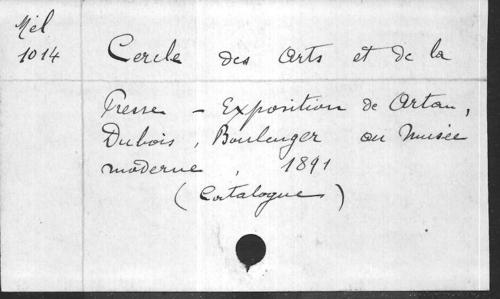 Mél
1014
Cercle des Arts et de la
Presse - Exposition de Artan,
Dubois, Boulenger au Musée
moderne, 1891
(Catalogue)